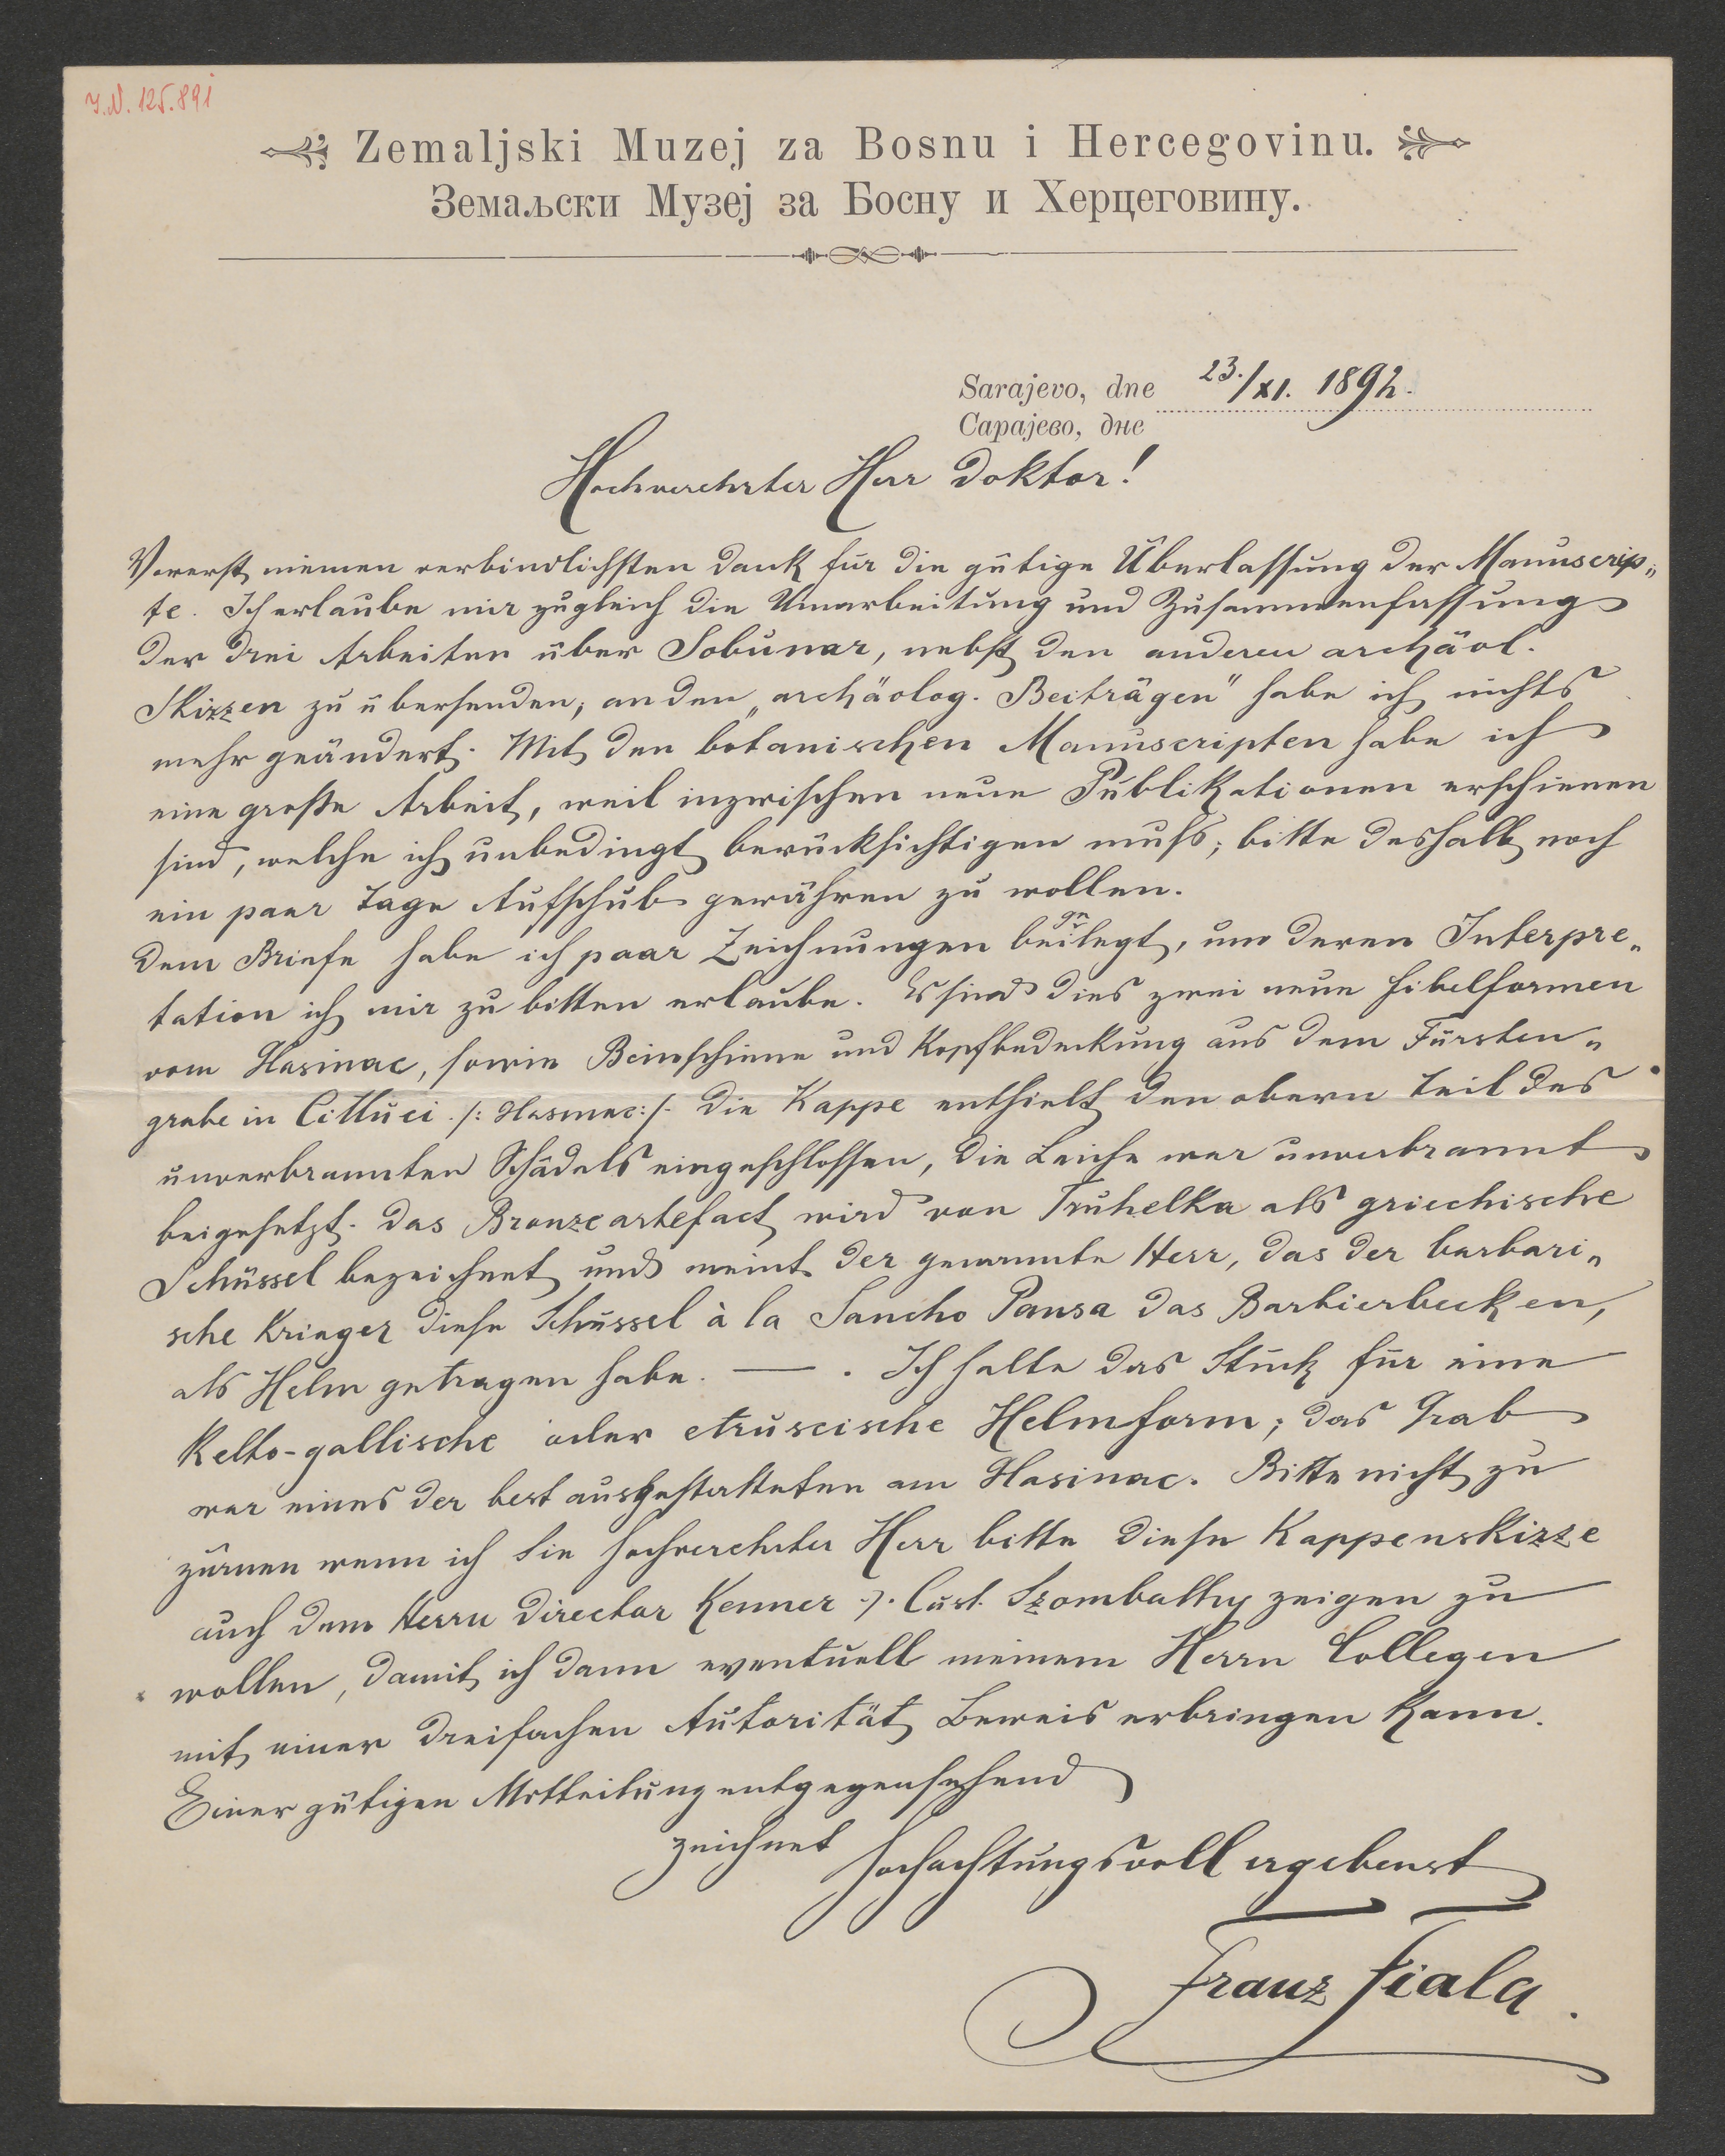 I.N. 125.891
Zemaljski Muzej za Bosnu i Hercegovinu.
Земаљски Музеј за Босну и Херцеговину.
Sarajevo, dne 23./XI. 1892.
Сарајево, дне
Hochverehrter Herr Doktor!
Vorerst meinen verbindlichsten Dank für die gütige Überlassung der Manuscrip„
te. Ich erlaube mir zugleich die Umarbeitung und Zusammenfassung
der drei Arbeiten über Sobunar, nebst den anderen archäol.
Skizzen zu übersenden; an den „archäolog. Beiträgen" habe ich nichts
mehr geändert. Mit den botanischen Manuscripten habe ich
eine große Arbeit, weil inzwischen neue Publikationen erschienen
sind, welche ich unbedingt berücksichtigen muß; bitte deshalb noch
ein paar Tage Aufschub gewähren zu wollen.
Dem Briefe habe ich paar Zeichnungen beigelegt, um deren Interpre„
tation ich mir zu bitten erlaube. Es sind dies zwei neue Fibelformen
vom Glasinac, sowie Beinschiene und Kopfbedeckung aus dem Fürsten„
grabe in Citluci /: Glasinac :/. Die Kappe enthielt den obern Teil des
unverbrannten Schädels eingeschlossen, die Leiche war unverbrannt
beigesetzt. Das Bronzeartefact wird von Truhelka als griechische
Schüssel bezeichnet und meint der genannte Herr, das der barbari„
sche Krieger diese Schüssel à la Sancho Pansa das Barbierbecken,
als Helm getragen habe. — . Ich halte das Stück für eine
Kelto-gallische oder etruscische Helmform; das Grab
war eines der best ausgestatteten am Glasinac. Bitte nicht zu
zürnen wenn ich Sie hochverehrter Herr bitte diese Kappenskizze
auch dem Herrn Director Kenner Cust. Szombathy zeigen zu
wollen, damit ich dann eventuell meinem Herrn Collegen
mit einer dreifachen Autorität Beweis erbringen kann.
Einer gütigen Mitteilung entgegensehend
zeichnet hochachtungsvoll ergebenst
Franz Fiala.